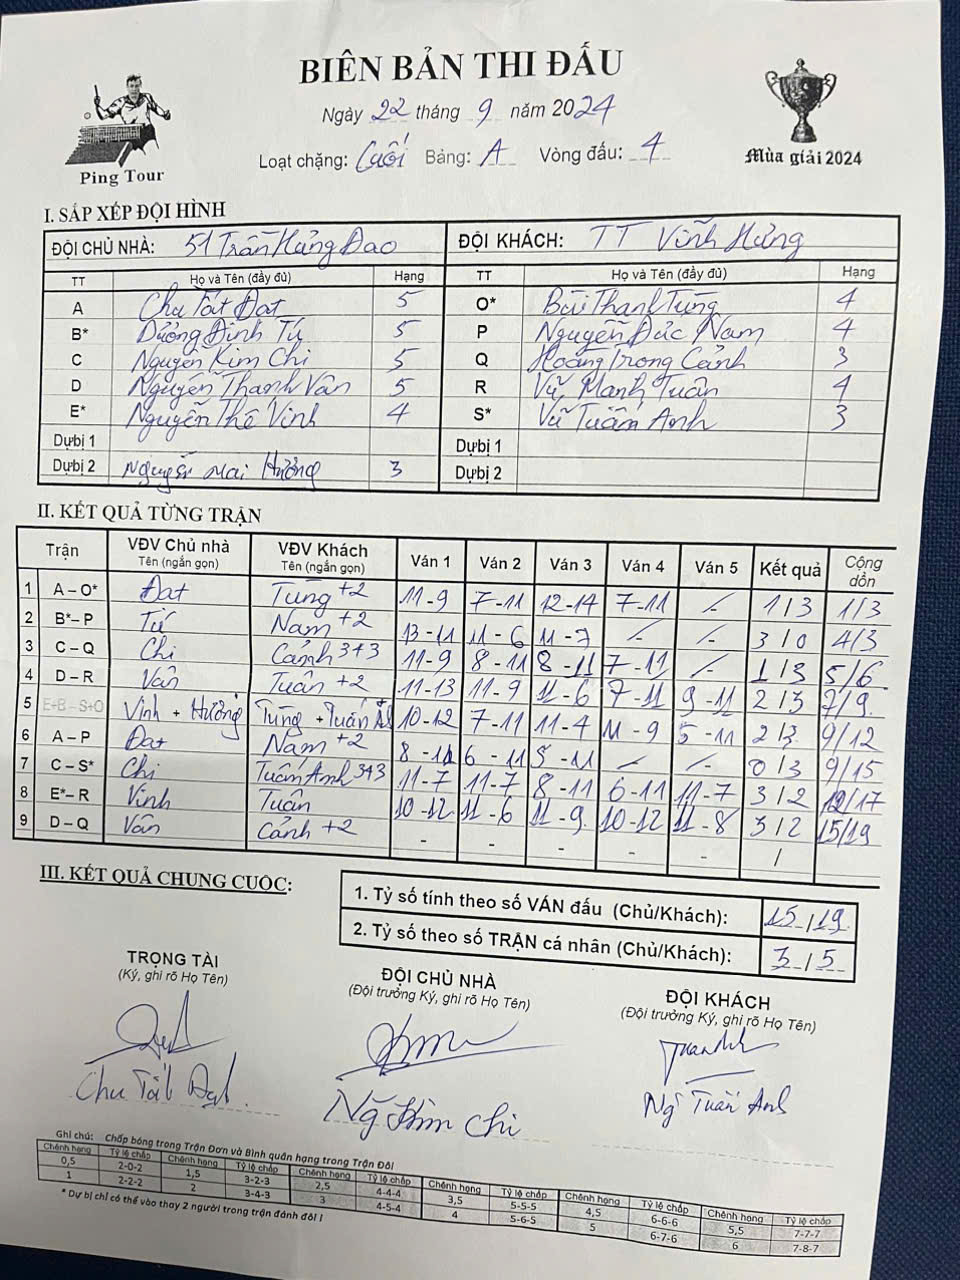 BIÊN BẢN THI ĐẤU
Ngày 22 tháng 9 năm 2024
Loạt chặng: Cuối Bảng: A Vòng đấu: 4
Ping Tour
Mùa giải 2024
I. SẮP XẾP ĐỘI HÌNH
ĐỘI CHỦ NHÀ: 51 Trần Hưng Đạo ĐỘI KHÁCH: TT Vĩnh Hưng
TT Họ và Tên (đầy đủ) Hạng TT Họ và Tên (đầy đủ) Hạng
A Chu Tất Đạt 5 O* Bùi Thanh Tùng 4
B* Dương Đình Tú 5 P Nguyễn Đức Nam 4
C Nguyễn Kim Chi 5 Q Hoàng Trọng Cảnh 3
D Nguyễn Thanh Vân 5 R Vũ Mạnh Tuân 4
E* Nguyễn Thế Vinh 4 S* Vũ Tuấn Anh 3
Dự bị 1 Dự bị 1
Dự bị 2 Nguyễn Mai Hường 3 Dự bị 2
II. KẾT QUẢ TỪNG TRẬN
Trận VĐV Chủ nhà Tên (ngắn gọn) VĐV Khách Tên (ngắn gọn) Ván 1 Ván 2 Ván 3 Ván 4 Ván 5 Kết quả Cộng dồn
1 A – O* Đạt Tùng +2 11-9 7-11 12-14 7-11 - 1/3 1/3
2 B* – P Tú Nam +2 13-11 11-6 11-7 - - 3/0 4/3
3 C – Q Chi Cảnh 343 11-9 8-11 8-11 7-11 - 1/3 5/6
4 D – R Vân Tuân +2 11-13 11-9 11-6 7-11 9-11 2/3 7/9
5 E+B – S+O Vinh + Hường Tùng + Tuấn A 10-12 7-11 11-4 11-9 5-11 2/3 9/12
6 A – P Đạt Nam +2 8-11 6-11 5-11 - - 0/3 9/15
7 C – S* Chi Tuấn Anh 343 11-7 11-7 8-11 6-11 11-7 3/2 12/17
8 E* – R Vinh Tuân 10-12 11-6 11-9 10-12 11-8 3/2 15/19
9 D – Q Vân Cảnh +2 - - - - - /
III. KẾT QUẢ CHUNG CUỘC:
1. Tỷ số tính theo số VÁN đấu (Chủ/Khách): 15/19
2. Tỷ số theo số TRẬN cá nhân (Chủ/Khách): 3/5
TRỌNG TÀI
(Ký, ghi rõ Họ Tên)
Chu Tất Đạt
ĐỘI CHỦ NHÀ
(Đội trưởng Ký, ghi rõ Họ Tên)
Ng Kim Chi
ĐỘI KHÁCH
(Đội trưởng Ký, ghi rõ Họ Tên)
Ng Tuấn Anh
Ghi chú: Chấp bóng trong Trận Đơn và Bình quân hạng trong Trận Đôi
Chênh hạng Tỷ lệ chấp Chênh hạng Tỷ lệ chấp Chênh hạng Tỷ lệ chấp Chênh hạng Tỷ lệ chấp Chênh hạng Tỷ lệ chấp Chênh hạng Tỷ lệ chấp
0,5 2-0-2 1,5 3-2-3 2,5 4-4-4 3,5 5-5-5 4,5 6-6-6 5,5 7-7-7
1 2-2-2 2 3-4-3 3 4-5-4 4 5-6-5 5 6-7-6 6 7-8-7
* Dự bị chỉ có thể vào thay 2 người trong trận đánh đôi !